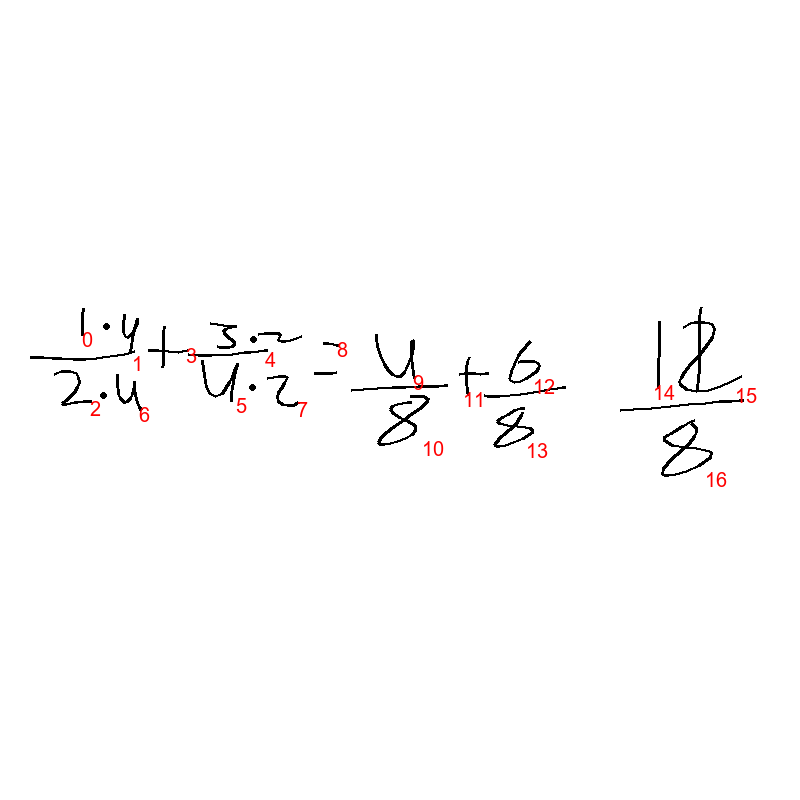 1·4/2·4 + 3·2/4·2 = 4/8 + 6/8 12/8
0 1 2 3 4 5 6 7 8 9 10 11 12 13 14 15 16